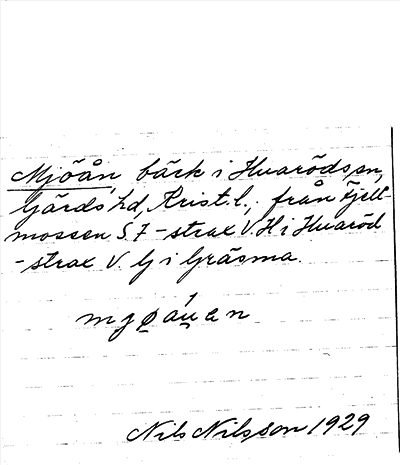 Mjöån, bäck i Huaröds sn,
Gärds hd, Krist. l., från Fjell-
mossen S. 7 - strax V. H i Huaröd
- strax V. G i Gräsma.
mjøáu̯en
Nils Nilsson 1929